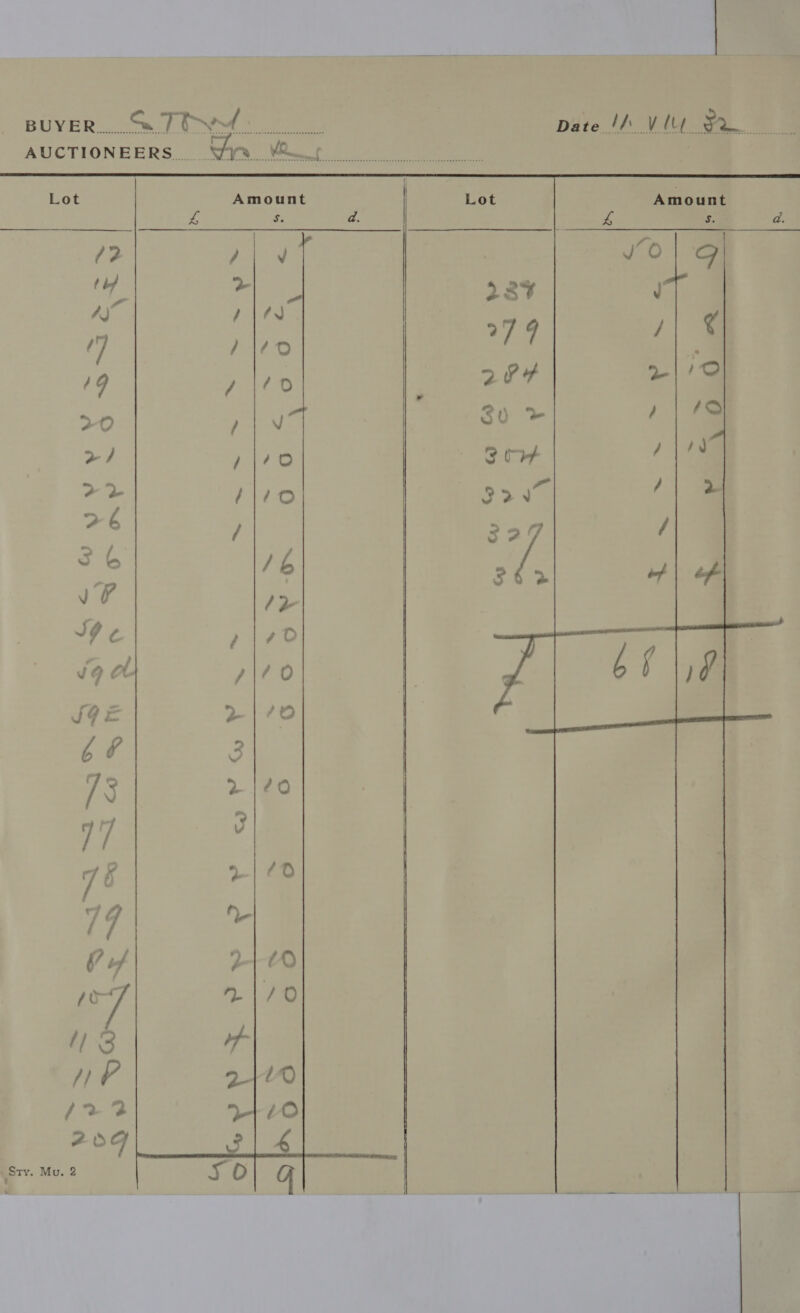 BUYER
Date
AUCTIONEERS
Lot Amount Lot Amount
£ s. d. £ s. d.
12 1 5
14 2
15 1 15
17 1 10
19 1 10
20 1 5
21 1 10
22 1 10
26 1
36 16
58 12
59c 1 10
59d 1 10
59E 2 10
68 3
73 2 10
77 3
78 2 10
79 2
84 2 10
107 2 10
113 4
118 2 10
122 2 10
209 3 6
50 9
Sty. Mu. 2
50 9
237 5
279 1 8
284 2 10
302 1 10
304 1 15
325 1 2
327 1
362 4 4
£ 68 18